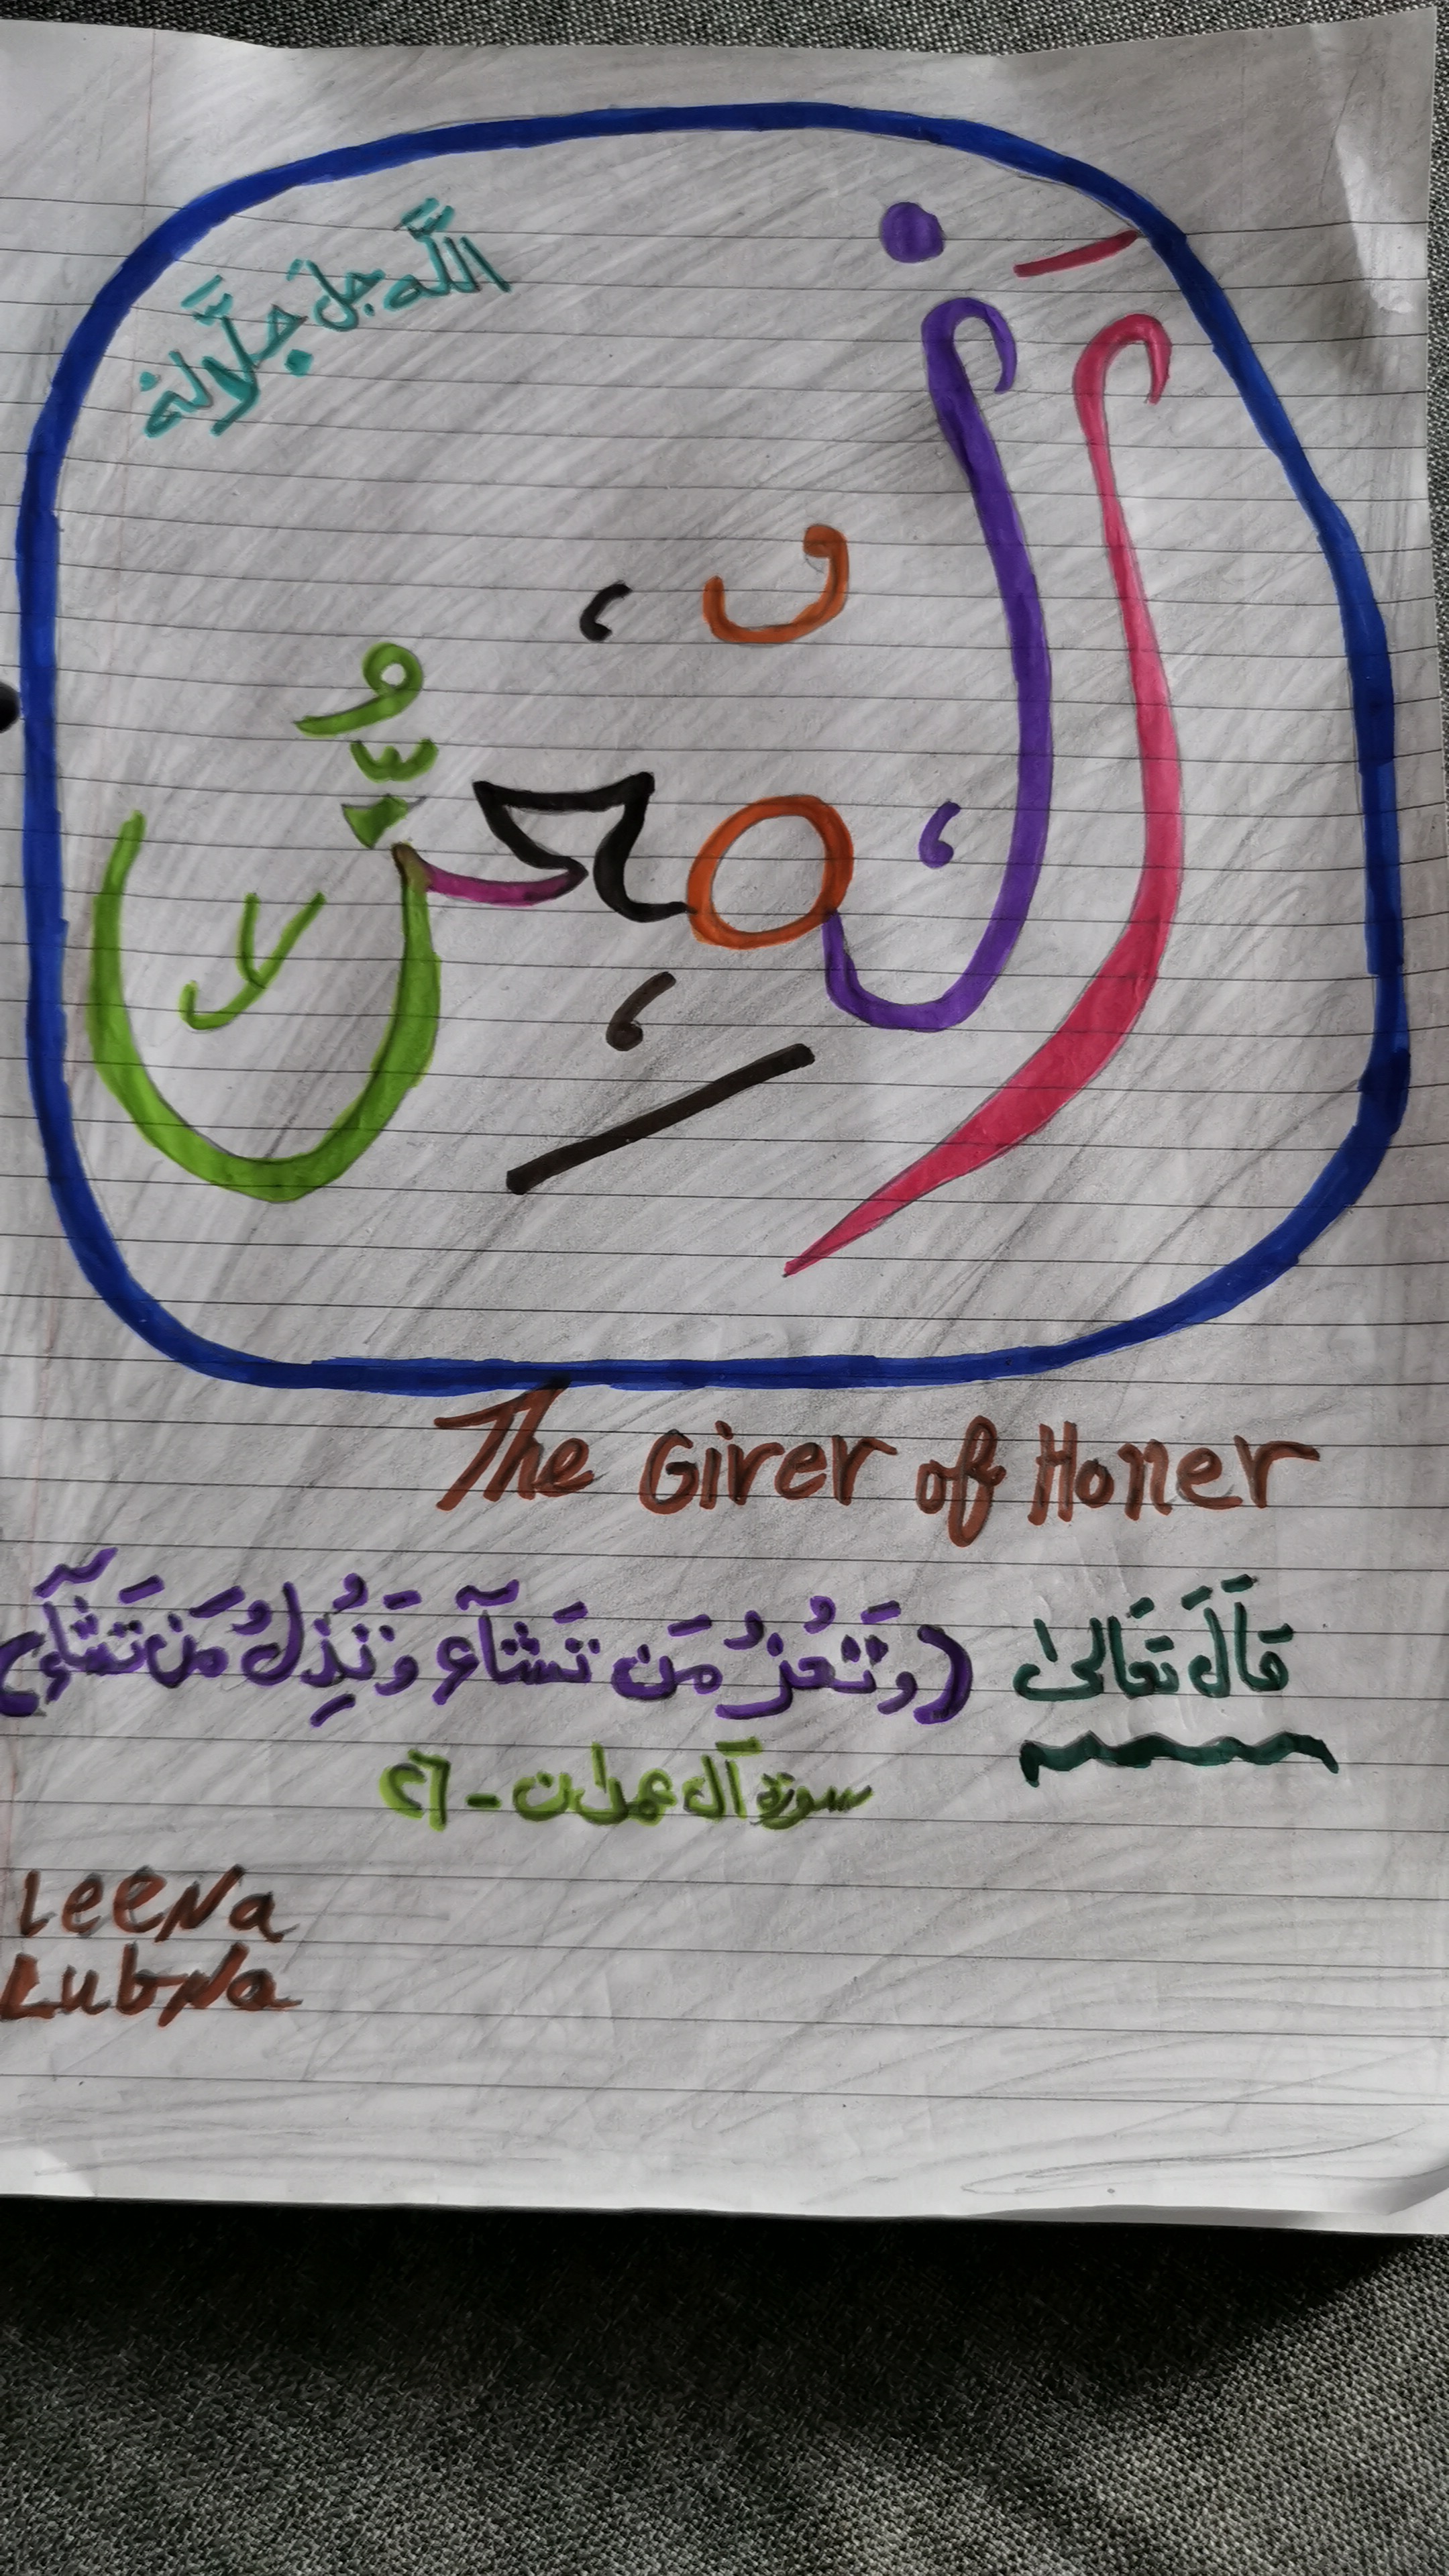 الله جل جلاله
المعز
The Girer of Honer
قال تعالى (وَتُعِزُّ مَن تَشَآء وَتُذِلُّ مَن تَشَآء)
سورة آل عمران - ٢٦
LeeNa
LubNa